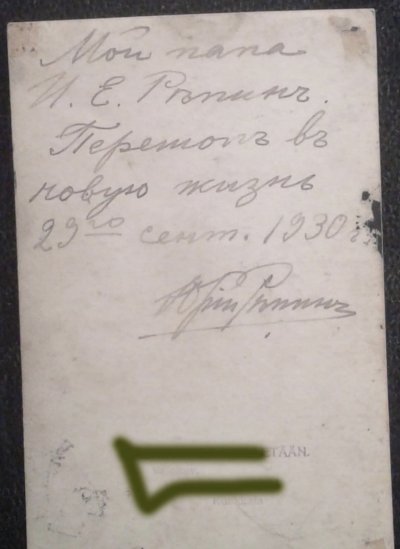 Мой папа
И. Е. Рѣпинъ.
Перешолъ въ
новую жизнь
29го сент. 1930 г.
Юрій Рѣпинъ
ETÄÄN.